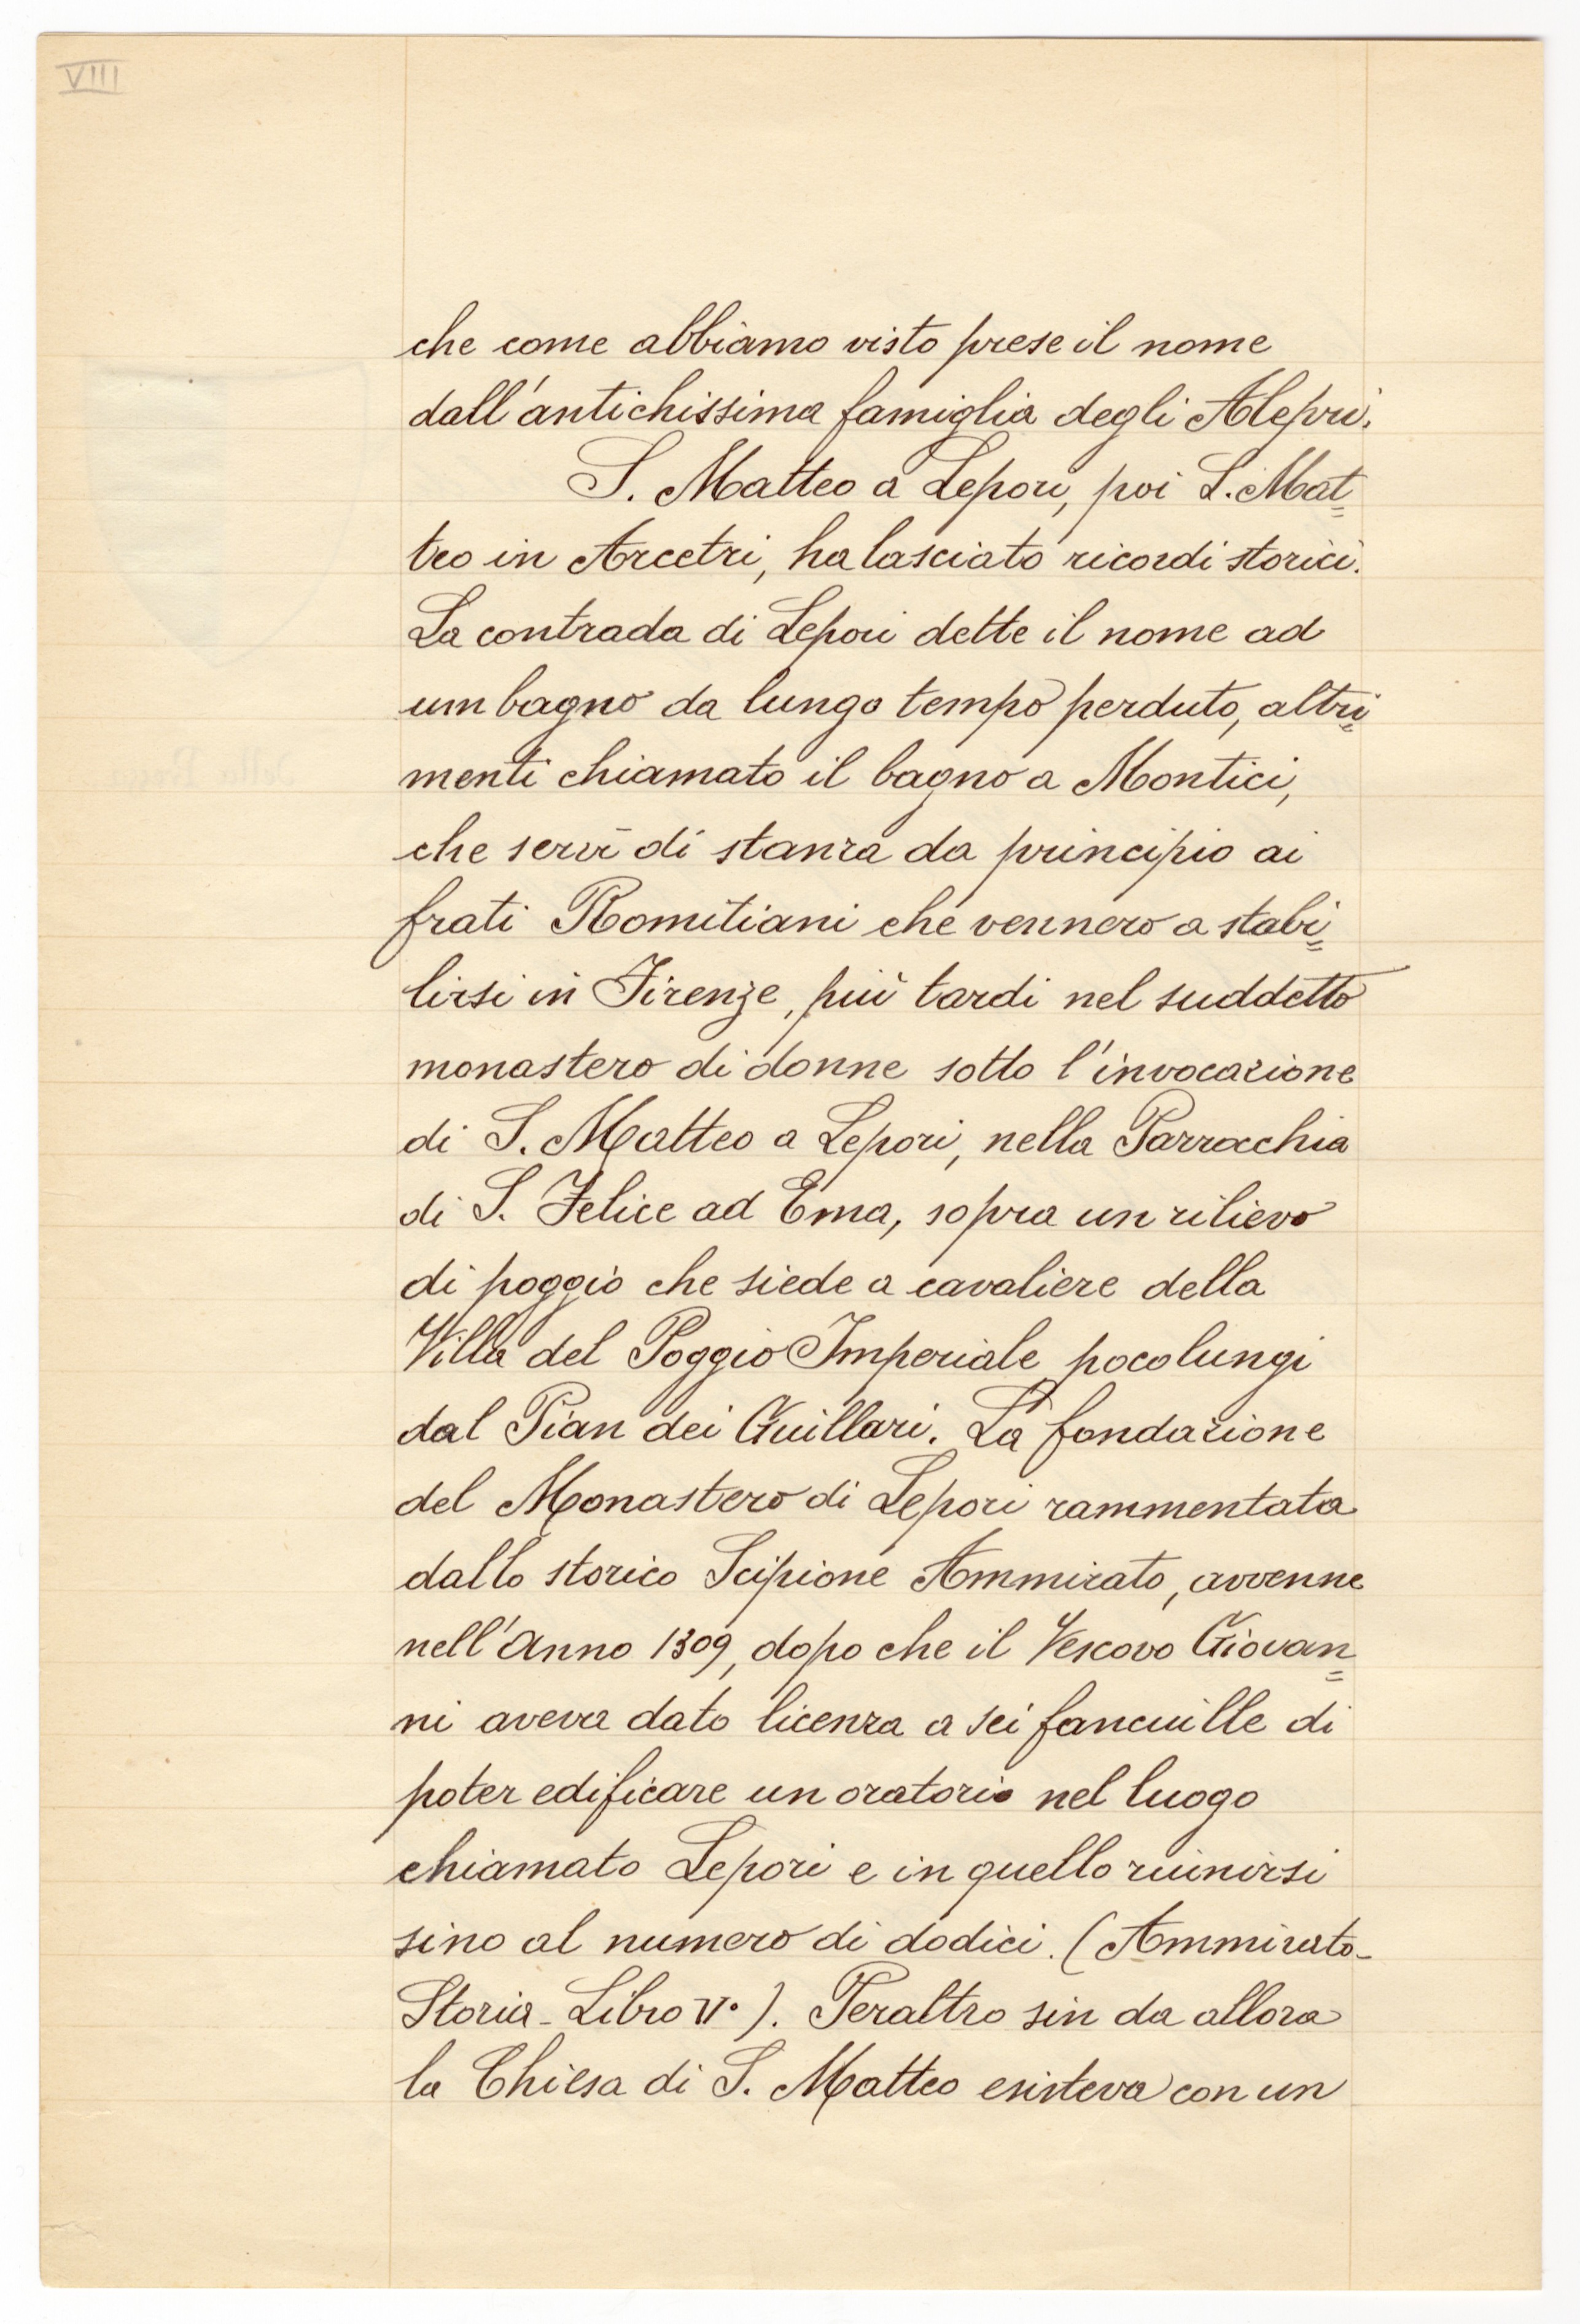 VIII
che come abbiamo visto prese il nome
dall'antichissima famiglia degli Alepri.
S. Matteo a Lepori, poi S. Mat=
teo in Arcetri, ha lasciato ricordi storici.
La contrada di Lepori dette il nome ad
un bagno da lungo tempo perduto, altri=
menti chiamato il bagno a Montici,
che servì di stanza da principio ai
frati Romitiani che vennero a stabi=
lirsi in Firenze, più tardi nel suddetto
monastero di donne sotto l'invocazione
di S. Matteo a Lepori, nella Parrocchia
di S. Felice ad Ema, sopra un rilievo
di poggio che siede a cavaliere della
Villa del Poggio Imperiale poco lungi
dal Pian dei Giullari. La fondazione
del Monastero di Lepori rammentata
dallo storico Scipione Ammirato, avvenne
nell'Anno 1309, dopo che il Vescovo Giovan=
ni aveva dato licenza a sei fanciulle di
poter edificare un oratorio nel luogo
chiamato Lepori e in quello riunirsi
sino al numero di dodici. (Ammirato-
Storia - Libro V°). Peraltro sin da allora
la Chiesa di S. Matteo esisteva con un